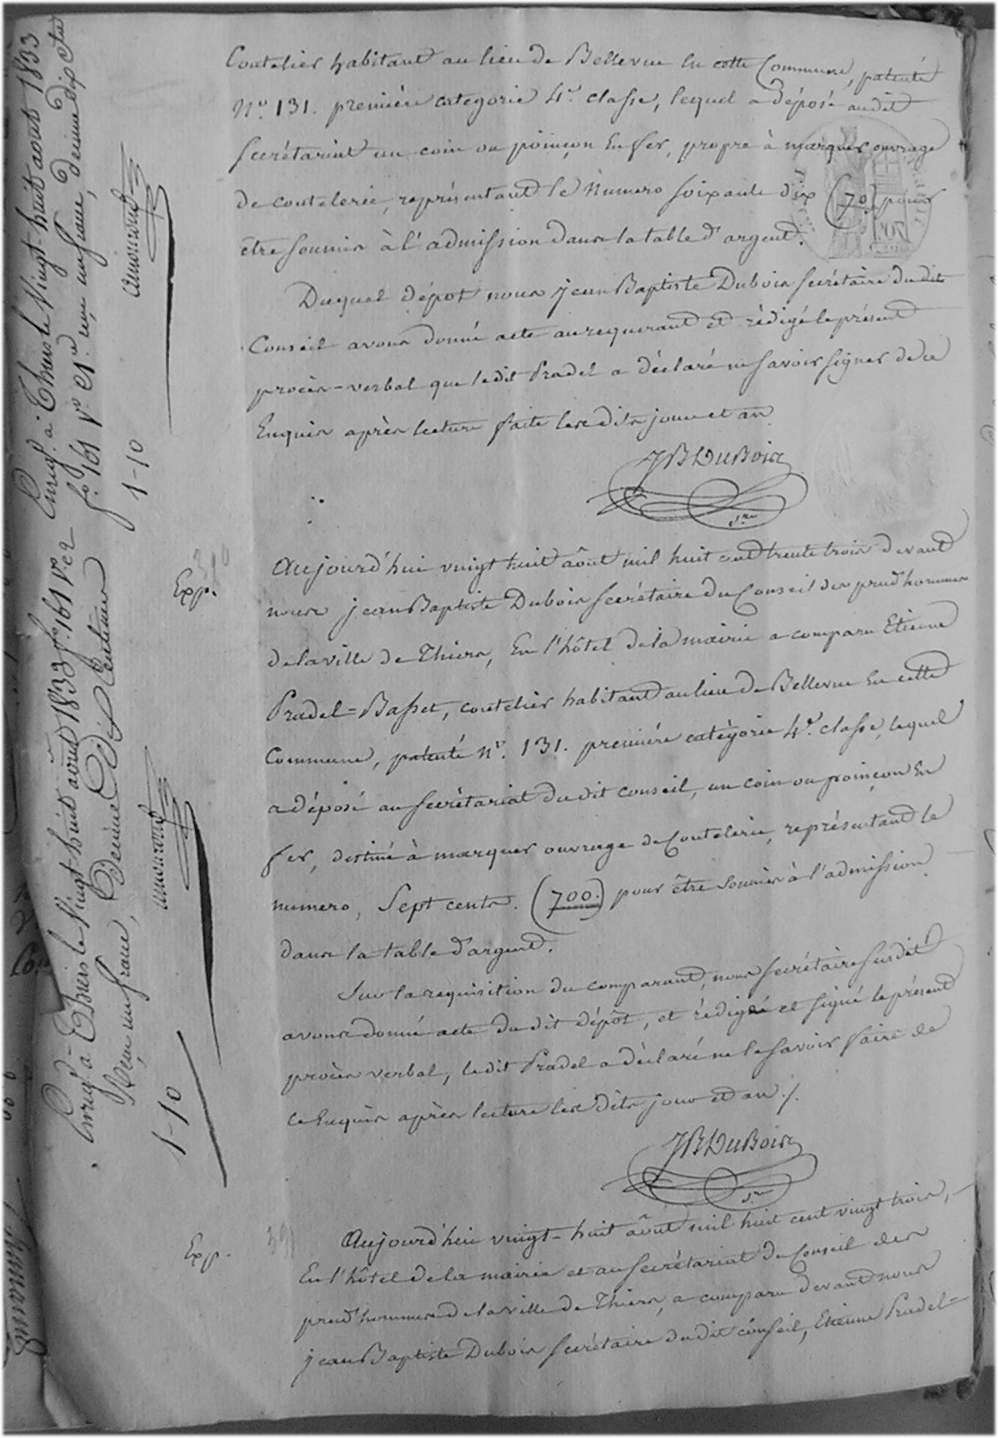 Coutelier habitant au lieu de Bellevue En cette Commune, patenté
N.o 131. premiere categorie 4.e classe, lequel a déposé audit
secrétariat un coin ou poinçon En fer, propre à marquer ouvrage
de coutelerie, représentant le Numero soixante dix (70) pour
être soumis à l'admission dans la table d'argent.
Duquel dépot nous jean Baptiste Dubois secrétaire du dit
Conseil avons donné acte au requerant et rédigé le présent
procès-verbal que ledit Pradel a déclaré ne savoir signer de ce
Enquis après lecture faite les dits jour et an
JB DuBois
s.re
Exp.
Aujourd'hui vingt huit août mil huit cent trente trois devant
nous jean Baptiste Dubois secrétaire du Conseil des prud'hommes
de la ville de Thiers, En l'hôtel de la mairie a comparu Etienne
Pradel=Basset, coutelier habitant au lieu de Bellevue En cette
Commune, patenté N.o 131. première catégorie 4.e classe, lequel
a déposé au secrétariat du dit conseil, un coin ou poinçon En
fer, destiné à marquer ouvrage de Coutelerie, représentant le
numero, Sept cents. (700.) pour être soumis à l'admission
dans la table d'argent.
Sur la requisition du comparant, nous secrétaire susdit
avons donné acte du dit dépôt, et rédigé et signé le présent
procès verbal, ledit Pradel a déclaré ne le savoir faire de
ce Enquis après lecture les dits jour et an ./.
JB DuBois
s.re
Exp.
Aujourd'hui vingt-huit août mil huit cent vingt trois,
En l'hôtel de la mairie et au secrétariat du Conseil des
prud'hommes de la ville de Thiers, a comparu devant nous
jean Baptiste Dubois secrétaire du dit conseil, Etienne Pradel=
Enreg.é à Thiers le Vingt-huit aout 1833
f.o 161 V.o C 1.er reçu un franc, decime dix c.mes
1-10
Enreg.é à Thiers le Vingt huit aout 1833 f.o 161 V.o C 2
Reçu un franc, Decime Dix Centimes
1-10